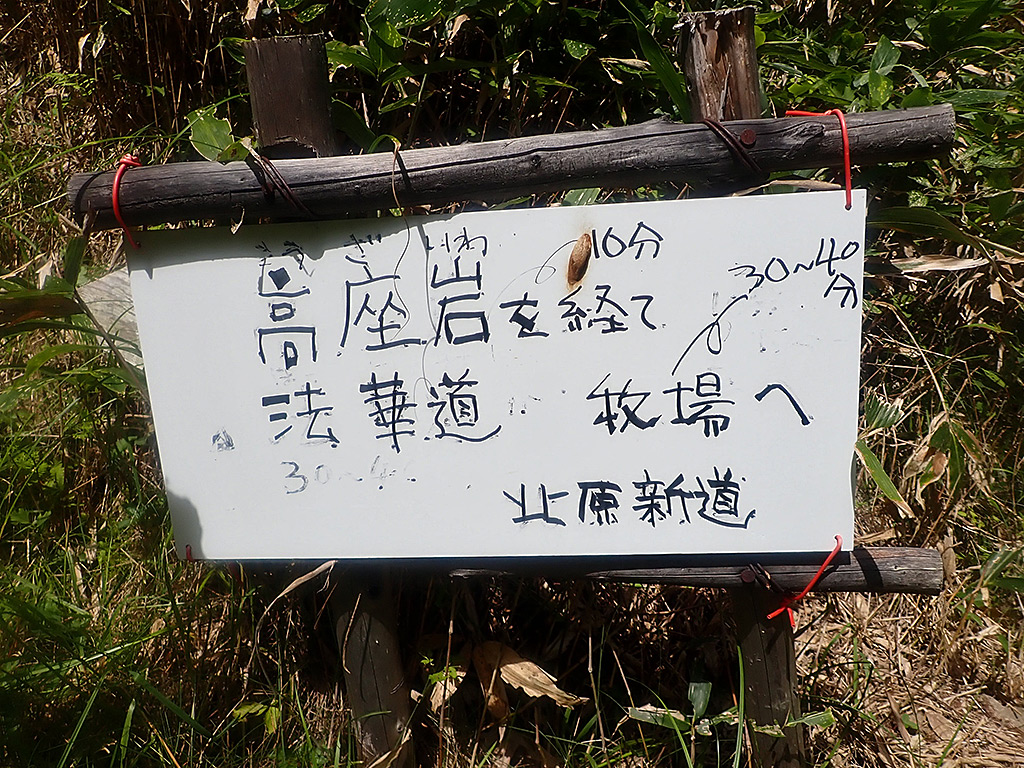 ざ いわ 10分
高座岩を経て 30~40分
法華道 牧場へ
30~4
北原新道